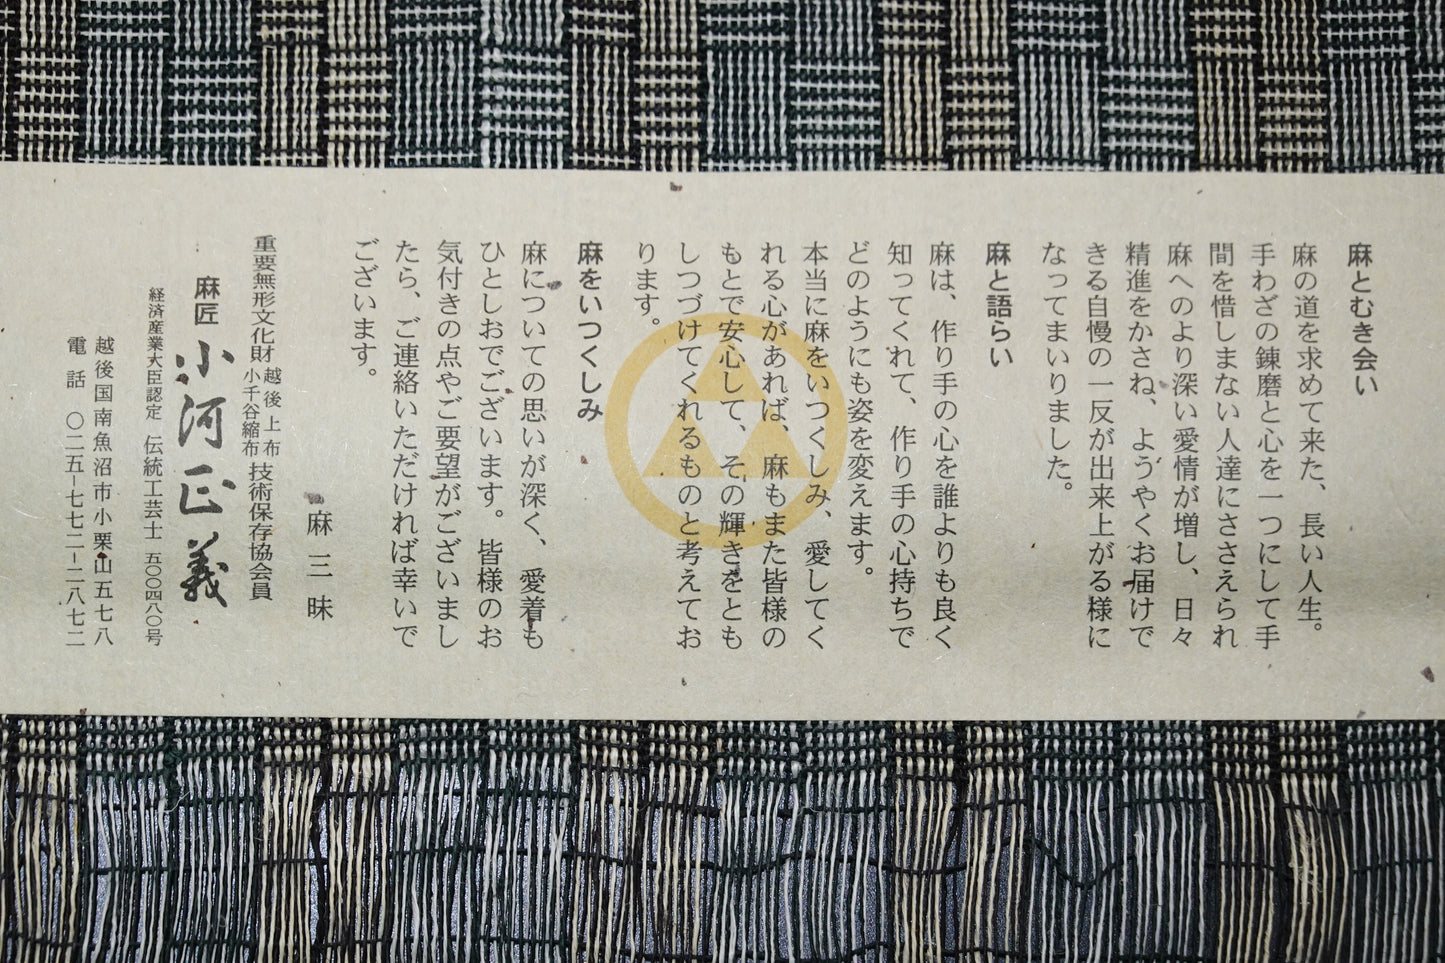 麻とむき会い
麻の道を求めて来た、長い人生。
手わざの錬磨と心を一つにして手
間を惜しまない人達にささえられ
麻へのより深い愛情が増し、日々
精進をかさね、ようやくお届けで
きる自慢の一反が出来上がる様に
なってまいりました。
麻と語らい
麻は、作り手の心を誰よりも良く
知ってくれて、作り手の心持ちで
どのようにも姿を変えます。
本当に麻をいつくしみ、愛してく
れる心があれば、麻もまた皆様の
もとで安心して、その輝きをとも
しつづけてくれるものと考えてお
ります。
麻をいつくしみ
麻についての思いが深く、愛着も
ひとしおでございます。皆様のお
気付きの点やご要望がございまし
たら、ご連絡いただければ幸いで
ございます。
麻三昧
重要無形文化財 越後上布 小千谷縮布 技術保存協会員
麻匠 小河正義
経済産業大臣認定 伝統工芸士 五〇〇四八〇号
越後国南魚沼市小栗山五七八
電話 〇二五-七七二-二八七二